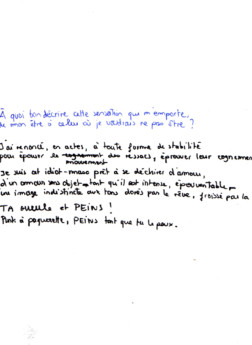 À quoi bon décrire cette sensation que m'emporte,
de mon être à celui où je voudrais ne pas être ?
J'ai renoncé, en actes, à toute forme de stabilité
pour épouser le mouvement des ressacs, éprouver leur cognement
Je suis cet idiot-mano prêt à se déchirer d'amour,
d'un amour sans objet tant qu'il est intense, épouvantable
une image indistincte aux tons donés par le rêve, froissé par la
TA GUEULE et PEINS !
Punk à paquerette, PEINS tant que tu le peux.